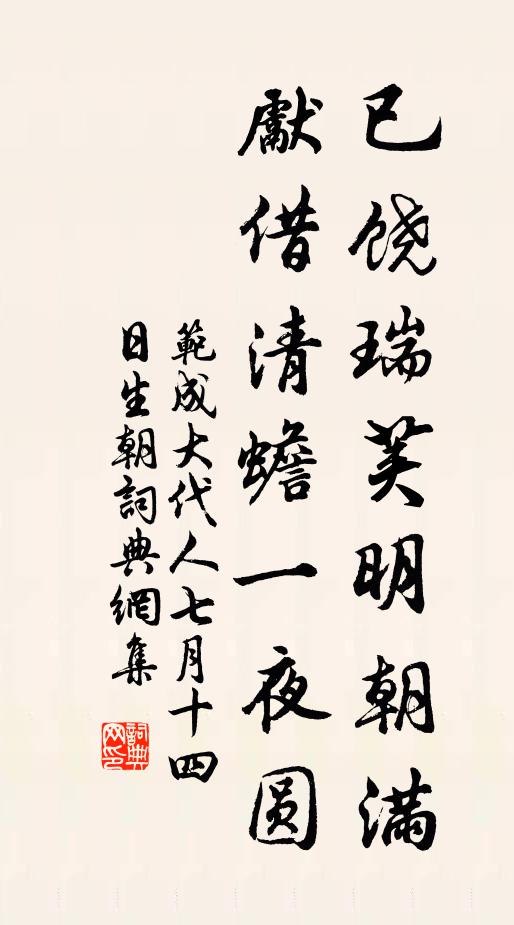 已饶瑞荚明朝满
獻借清蟾一夜圆
範成大代人七月十四
日生朝詞典網集
詞典网印